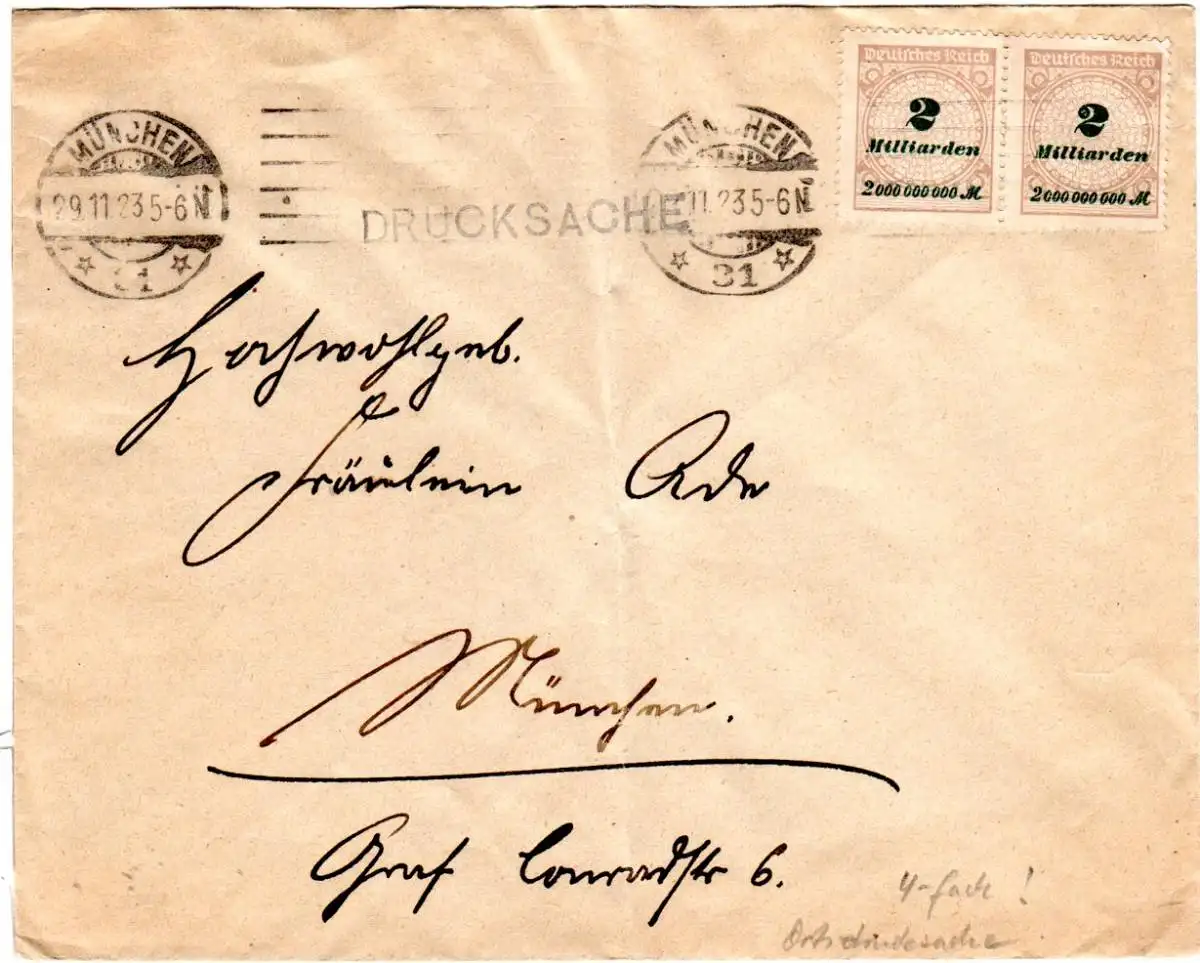 Deutsches Reich
2
Milliarden
2000000000 M
Deutsches Reich
2
Milliarden
2000000000 M
MÜNCHEN
29.11.23 5-6 N
31
DRUCKSACHE
MÜNCHEN
11.23 5-6 N
31
Hochwohlgeb.
Fräulein Ade
München.
Graf Conradstr 6.
4-fach!
Ortsdrucksache